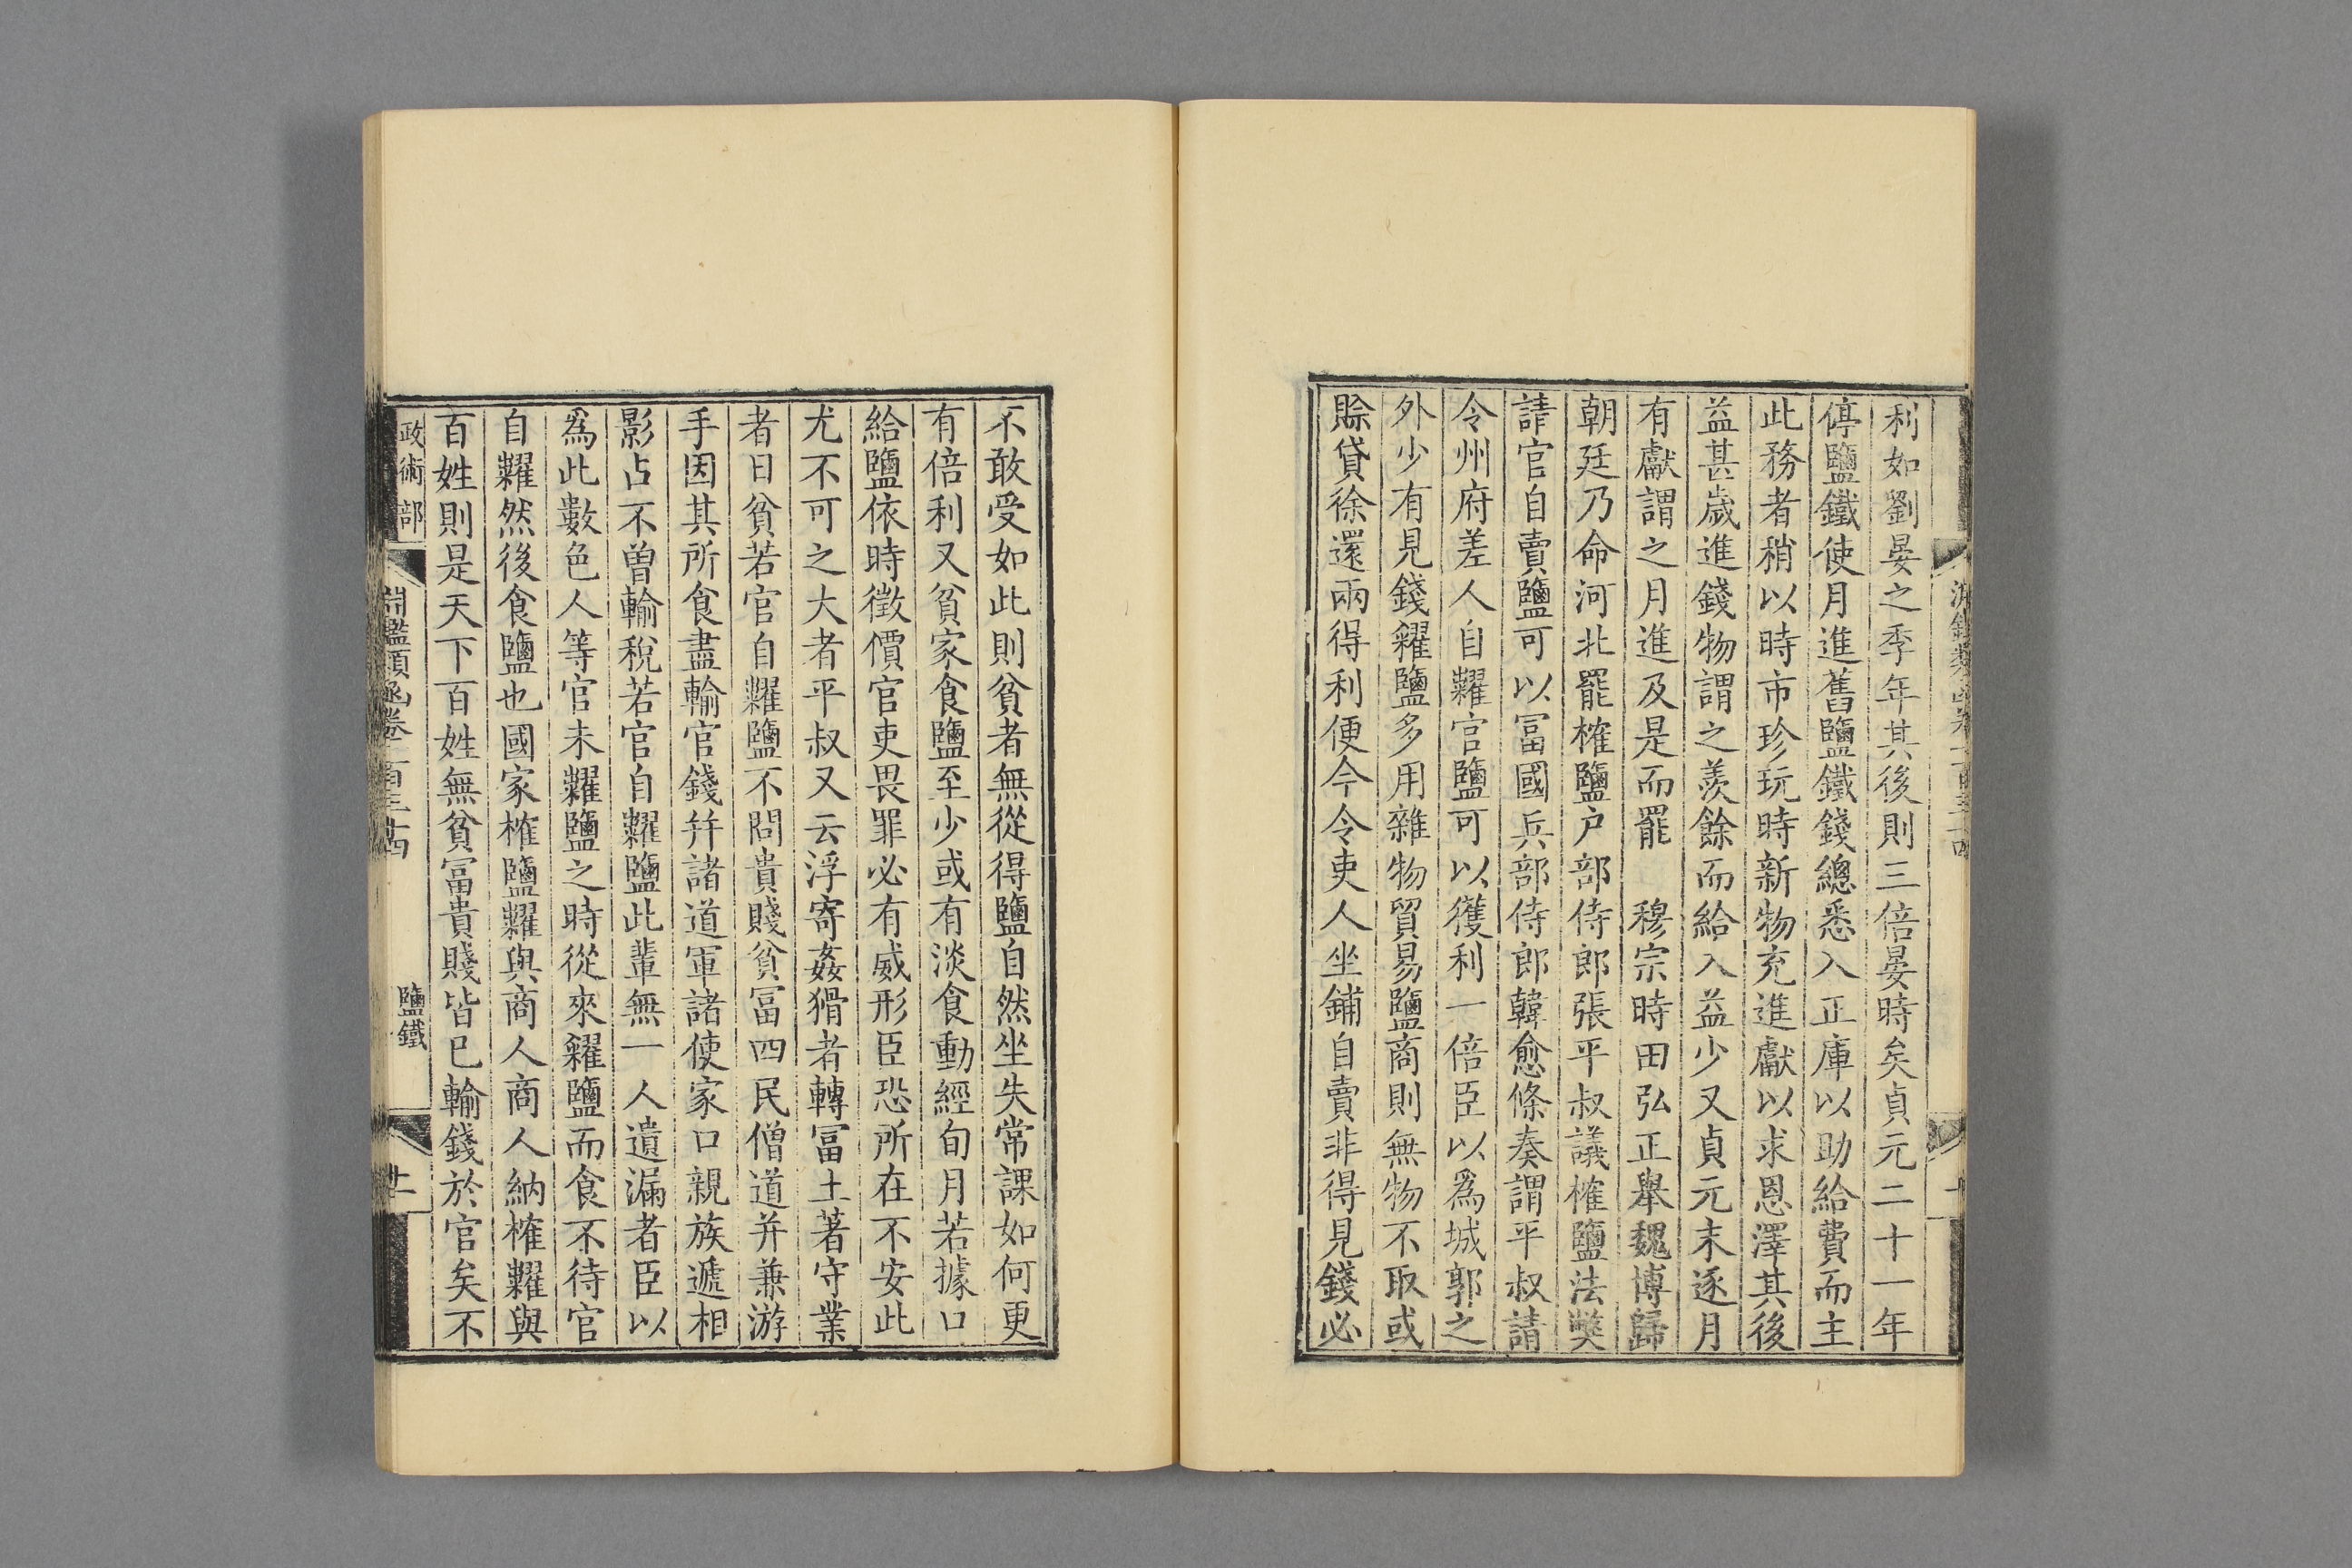 利如劉晏之季年其後則三倍晏時矣貞元二十一年
停鹽鐵使月進舊鹽鐵錢總悉入正庫以助給費而主
此務者稍以時市珍玩時新物充進獻以求恩澤其後
益甚歲進錢物謂之羨餘而給入益少又貞元末逐月
有獻謂之月進及是而罷　穆宗時田弘正舉魏博歸
朝廷乃命河北罷榷鹽户部侍郎張平叔議榷鹽法獘
請官自賣鹽可以冨國兵部侍郎韓愈條奏謂平叔請
令州府差人自糶官鹽可以獲利一倍臣以爲城郭之
外少有見錢糴鹽多用雜物貿易鹽商則無物不取或
賒貸徐還兩得利便今令吏人坐鋪自賣非得見錢必
不敢受如此則貧者無從得鹽自然坐失常課如何更
有倍利又貧家食鹽至少或有淡食動經旬月若據口
給鹽依時徵價官吏畏罪必有威形臣恐所在不安此
尤不可之大者平叔又云浮寄姦猾者轉冨土著守業
者日貧若官自糶鹽不問貴賤貧冨四民僧道并兼游
手因其所食盡輸官錢幷諸道軍諸使家口親族遞相
影占不曾輸稅若官自糶鹽此輩無一人遺漏者臣以
爲此數色人等官未糶鹽之時從來糴鹽而食不待官
自糶然後食鹽也國家榷鹽糶與商人商人納榷糶與
百姓則是天下百姓無貧冨貴賤皆已輸錢於官矣不
政術部
淵鑑類函卷一百三十四
鹽鐵
廿一